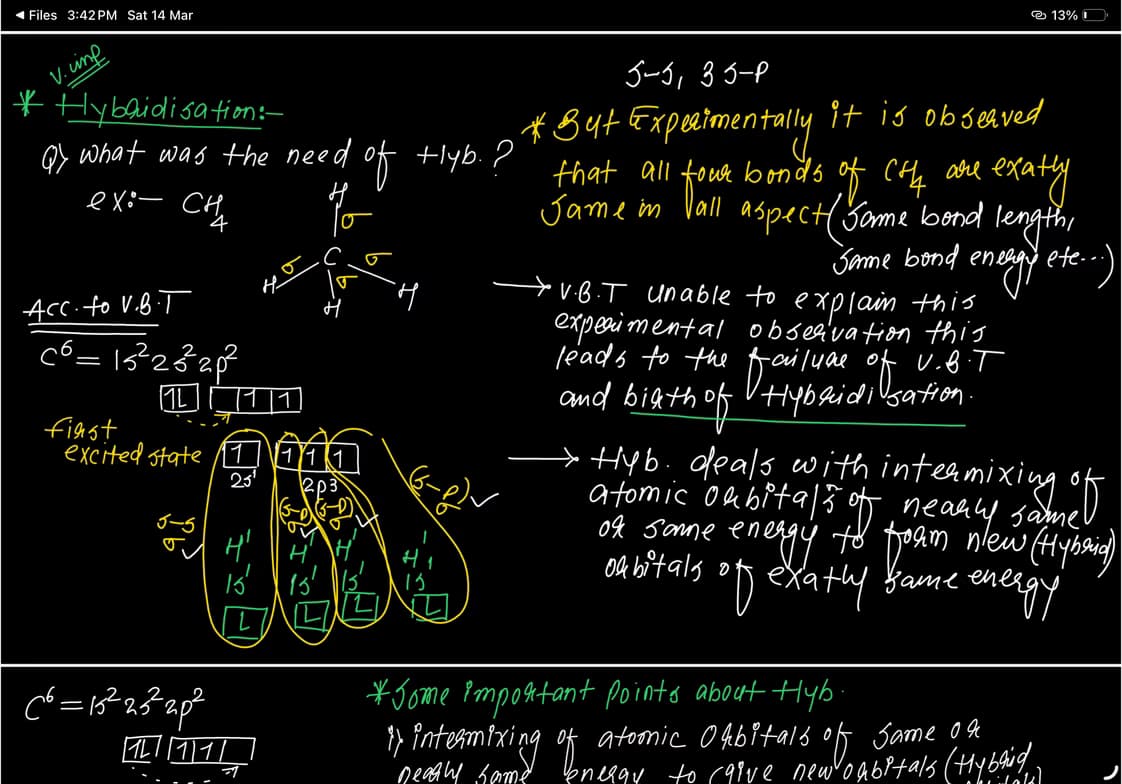 Files 3:42 PM Sat 14 Mar
13%
V. imp
* Hybridisation:-
Q) What was the need of Hyb. ?
ex:- CH4
H
σ
σ C σ
H σ H
H
Acc. to V.B.T
C6 = 1s2 2s2 2p2
1L 1 1
first
excited state
1 1 1 1
2s1 2p3
(s-p) (s-p) (s-p)
σ σ σ
s-s
σ
H1 H1 H1 H1
1s1 1s1 1s1 1s1
L L L L
s-s, 3 s-p
* But Experimentally it is observed
that all four bonds of CH4 are exatly
same in all aspect (same bond length,
same bond energy etc...)
→ V.B.T unable to explain this
experimental observation this
leads to the failure of V.B.T
and birth of Hybridisation.
→ Hyb. deals with intermixing of
atomic orbitals of nearly same
or same energy to form new (Hybrid)
orbitals of exatly same energy
C6 = 1s2 2s2 2p2
1L 1 1
* Some important points about Hyb.
i) intermixing of atomic orbitals of same or
nearly same energy to give new orbitals (Hybrid